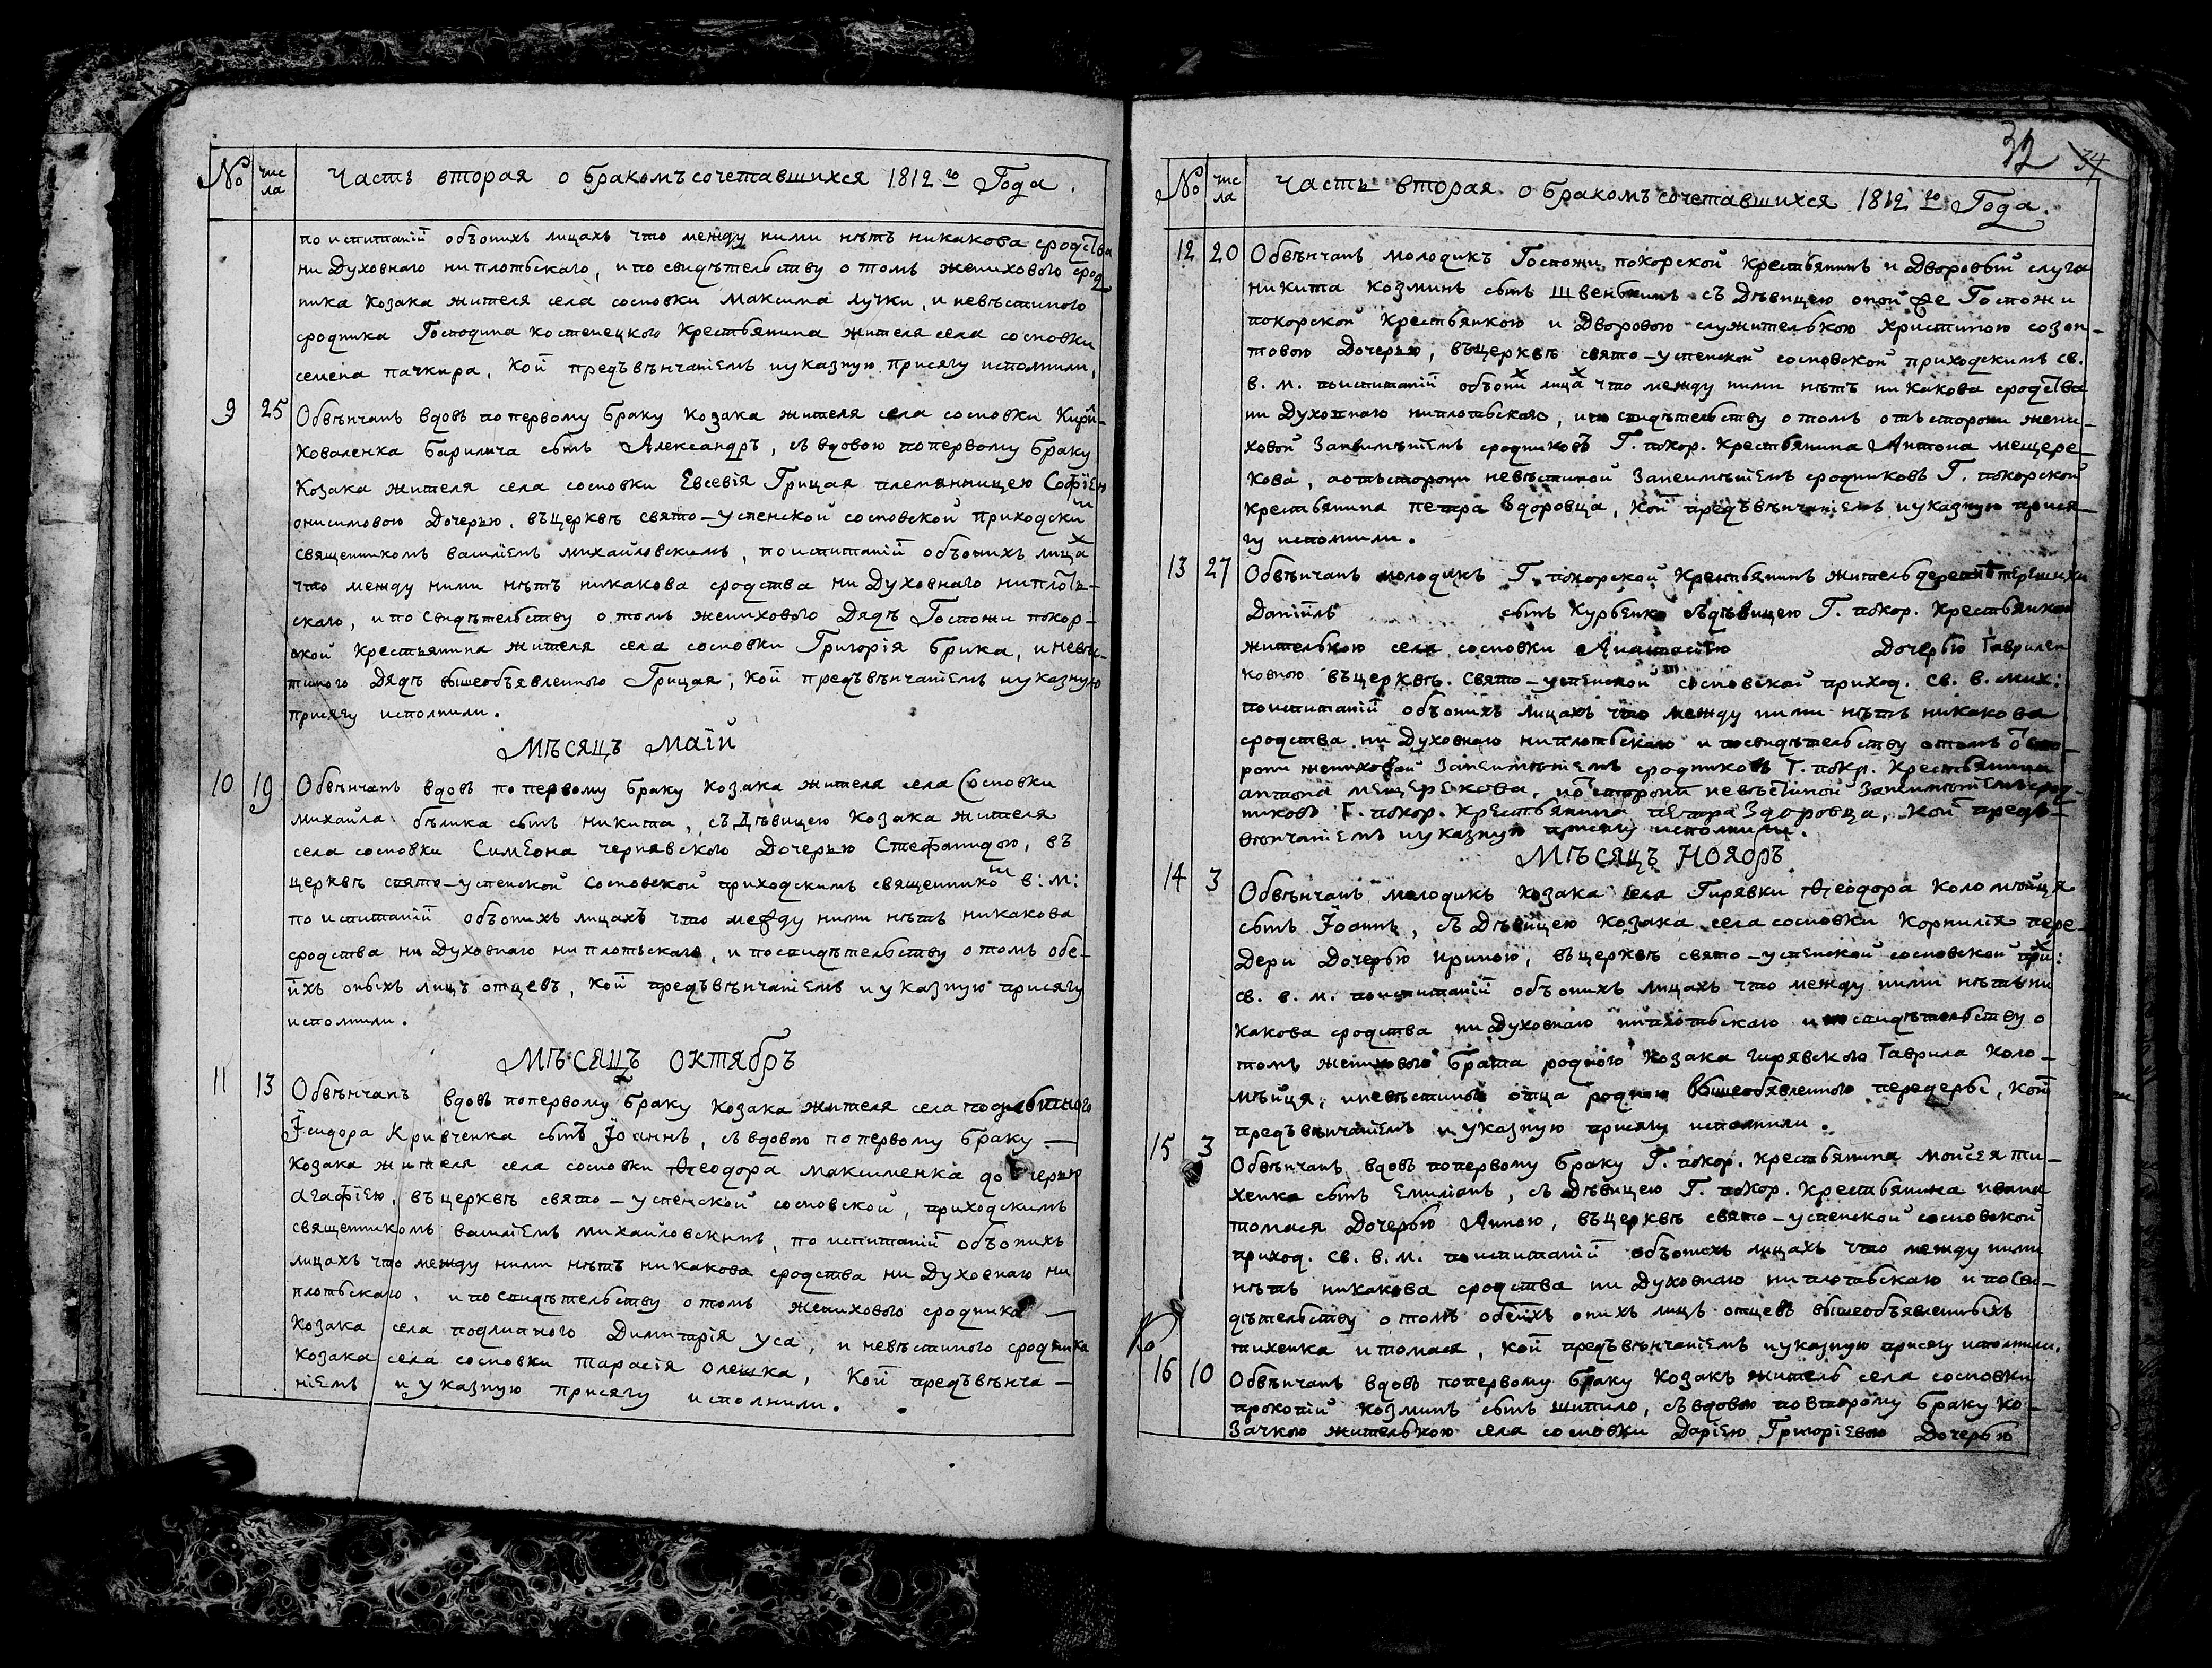 № числа Часть вторая о бракомъ сочетавшихся 1812го Года.
по испитанїй объонихъ лицахъ что между ними нѣтъ никакова сродства
ни Духовнаго ниплотьскаго, ипо свидѣтельству отомъ женихового срод
ника козака жителя села сосновки максима лучки, и невѣстиного
сродника Господина костенецкого крестьянина жителя села сосновки
семена пачкира, кои предъвѣнчанїемъ иуказную присягу исполнили,
9 25 Обвѣнчанъ вдовъ попервому браку козака жителя села сосновки Кири-
коваленка барилыча сынъ Александръ, съ вдовою попервому браку
козака жителя села сосновки Евсевїя Грицая племянницею Софїею
онисимовою Дочерью, въцерквѣ свято-успенской сосновской приходским
священникомъ василїемъ михайловскимъ, поиспитанїй объонихъ лицах
что между ними нѣтъ никакова сродства ни Духовнаго ниплоть-
скаго, ипо свидѣтельству отомъ женихового Дядѣ Госпожи покор-
ской крестьянина жителя села сосновки Григорїя брика, иневѣс-
тиного Дядѣ вышеобъявленного Грицая, кои предъвѣнчанїемъ иуказную
присягу исполнили.
Мѣсяцъ маїй
10 19 Обвѣнчанъ вдовъ попервому браку козака жителя села Сосновки
михайла бѣлика сынъ никита, съ Дѣвицею козака жителя
села сосновки Симеона чернявского Дочерью Стефанидою, въ
церквѣ свято-успенской сосновской приходскимъ священником в: м:
по испитанїй объонихъ лицахъ что между ними нѣтъ никакова
сродства ни Духовнаго ниплотьскаго, и посвидѣтельству отомъ обе-
ихъ оныхъ лицъ отцевъ, кои предъвѣнчанїемъ иуказную присягу
исполнили.
Мѣсяцъ октябръ
11 13 Обвѣнчанъ вдовъ попервому браку козака жителя села подлыпного
Їсидора Кривченка сынъ Їоаннъ, съвдовою попервому браку —
козака жителя села сосновки Ѳеодора максименка дочерью
агафїею, въцерквѣ свято-успенской сосновской, приходскимъ
священникомъ василїемъ михайловскимъ, по испитанїй объонихъ
лицахъ что между ними нѣтъ никакова сродства ни Духовнаго ни
плотьскаго, ипо свидѣтельству отомъ женихового сродника —
козака села подлипного Димитрїя уса, и невѣстиного сродника
козака села сосновки тарасїя олешка, кои предъвѣнча-
нїемъ иуказную присягу исполнили.
32 34
№ числа Часть вторая о бракомъ сочетавшихся 1812го Года.
12 20 Обвѣнчанъ молодикъ Госпожи покорской крестьянинъ и Дворовый слуга
никита козминъ сынъ Швенькинъ съ Дѣвицею оной же Госпожи
покорской крестьянкою и Дворовою служителькою христиною созон-
товою Дочерью, въцерквѣ свято-успенской сосновской приходскимъ св.
в. м. поиспитанїй объоних лицах что между ними нѣтъ никакова сродства
ни Духовнаго ниплотьскаго, ипо свидѣтельству отомъ отъ сторони жени-
ховой Занеимѣнїемъ сродниковъ Г. покор. крестьянина Антона мещере-
кова, аотъсторони невѣстиной Занеимѣнїемъ сродниковъ Г. покорской
крестьянина петра Здоровца, кои предъвѣнчанїемъ иуказную прися-
гу исполнили.
13 27 Обвѣнчанъ молодикъ Г. покорской крестьянинъ житель деревнѣ терешихи
Данїилъ сынъ Курбенко съдѣвицею Г. покор. крестьянкою
жителькою села сосновки Анастасїею Дочерью Гаврилен
ковною въцерквѣ свято-успенской сосновской приход. св. в. мих:
поиспитанїй объонихъ лицахъ что между ними нѣтъ никакова
сродства ни Духовнаго ниплотьскаго и посвидѣтельству отомъ отсто-
рони жениховой Занеимѣнїемъ сродниковъ Г. покр. крестьянина
антона мещерекова, исторони невѣстиной Занеимѣнїемъ срод-
никовъ Г. покор. крестьянина петра Здоровца, кои предъ-
вѣнчанїемъ иуказную присягу исполнили.
Мѣсяцъ Ноябръ
14 3 Обвѣнчанъ молодикъ козака села Гирявки Ѳеодора коломыйця
сынъ Їоаннъ, съ Дѣвицею козака села сосновки Корнилїя пере-
Дери Дочерью ириною, въцерквѣ свято-успенской сосновской прих:
св. в. м. поиспитанїй объонихъ лицахъ что между ними нѣтъни
какова сродства ни Духовнаго ниплотьскаго ипо свидѣтельству о
томъ женихового брата родного козака гирявского Гаврила коло-
мыйця, иневѣстиного отца родного вышеобявленного передеры, кои
предъвѣнчанїемъ иуказную присягу исполнили.
15 3 Обвѣнчанъ вдовъ попервому браку Г. покор. крестьянина моисея ти-
хенка сынъ Емилїанъ, съ дѣвицею Г. покор. крестьянина ивана
томася Дочерью Анною, въцерквѣ свято-успенской сосновской
приход. св. в. м. поиспитанїй объонихъ лицахъ что между ними
нѣтъ никакова сродства ни Духовнаго ниплотьскаго ипосви-
дѣтельству отомъ обеихъ онихъ лицъ отцевъ вышеобъявленныхъ
тихенка итомася, кои предъвѣнчанїемъ иуказную присягу исполнили.
16 10 Обвѣнчанъ вдовъ попервому браку козакъ житель села сосновки
прокопїй козминъ сынъ шипило, съвдовою повторому браку ко-
зачкою жителькою села сосновки Дарїею Григорїевою Дочерью